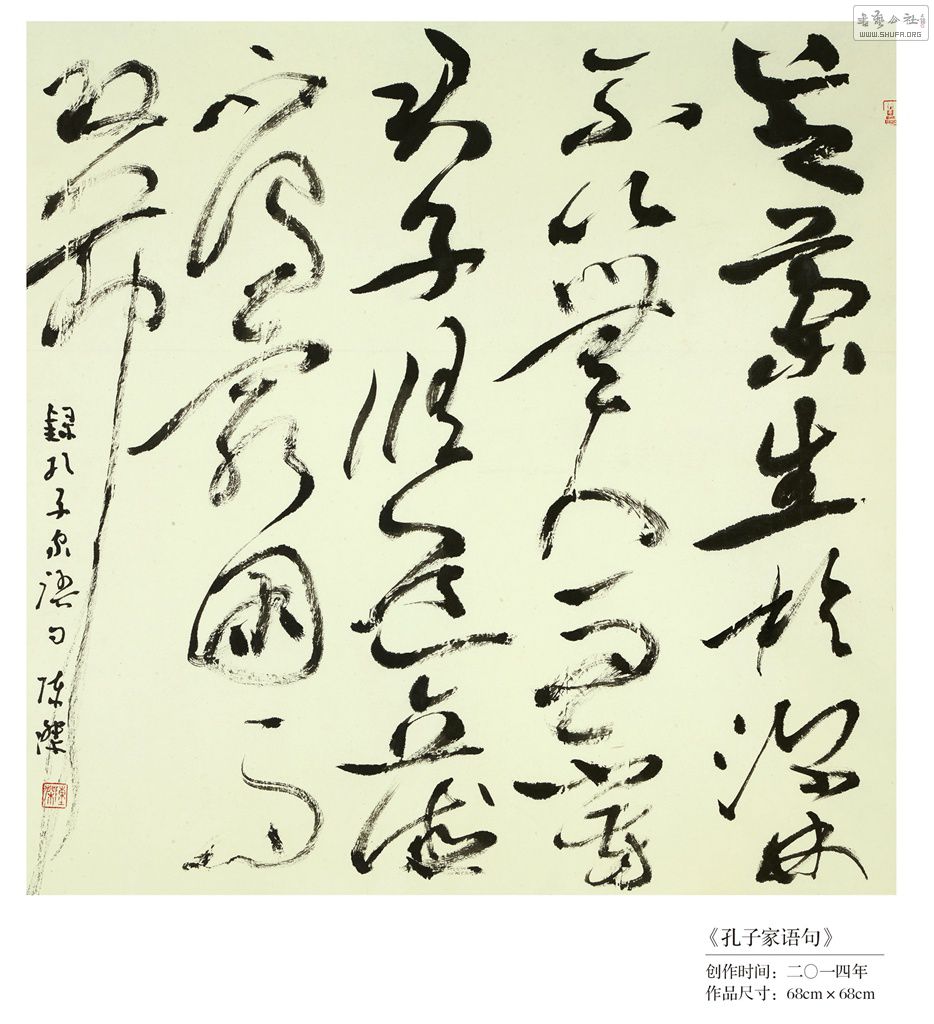 書藝公社
WWW.SHUFA.ORG
芝蘭生於深林
不以無人而不芳
君子脩道立德
不為窮困而
改節
錄孔子家語句 陳傑
《孔子家语句》
创作时间：二〇一四年
作品尺寸：68cm×68cm